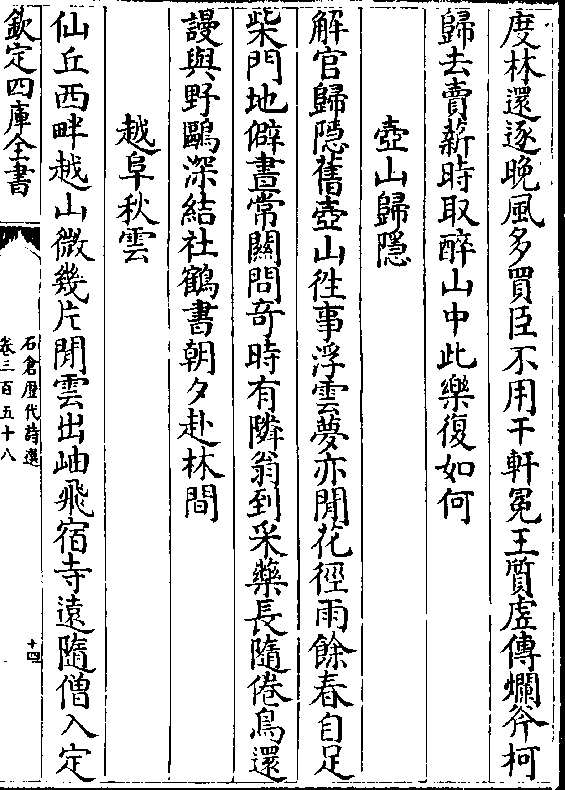 度林還逐晚風多買臣不用干軒冕王質虛傳爛斧柯
歸去賣薪時取醉山中此樂復如何
壺山歸隱
解官歸隱舊壺山徃事浮雲夢亦閒花徑雨餘春自足
柴門地僻晝常關問竒時有隣翁到采藥長隨倦鳥還
謾與野鷗深結社鶴書朝夕赴林間
越阜秋雲
仙丘西畔越山微幾片閒雲出岫飛宿寺遠隨僧入定
欽定四庫全書
石倉歴代詩選
卷三百五十八
十四